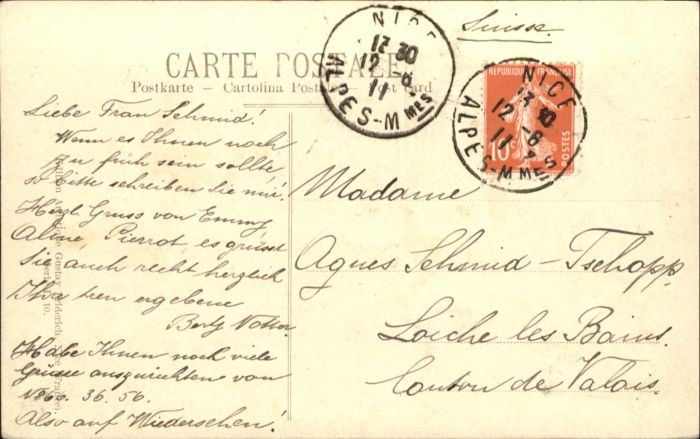 Suisse.
CARTE POSTALE
Postkarte – Cartolina Postale – Post Card
NICE
17 30
12 -6
11
ALPES-MMES
NICE
30
12 -6
11
ALPES-MMES
REPUBLIQUE FRANÇAISE
10c
POSTES
Liebe Frau Schmid!
Wenn es Ihnen noch
zu früh sein sollte
so bitte schreiben Sie mir.
Herzl. Gruss von Emmy
Aline Pierrot, es grüsst
Sie auch recht herzlich
Ihre treu ergebene
Berty
Habe Ihnen noch viele
Grüsse auszurichten von
36. 56.
Also auf Wiedersehen!
Madame
Agnes Schmid-Tschopp.
Loiche les Bains.
Canton de Valais.